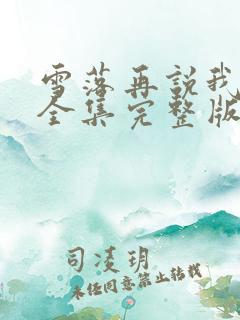 雪落再說我
全集完整版
司凌玥
未经同意禁止转载